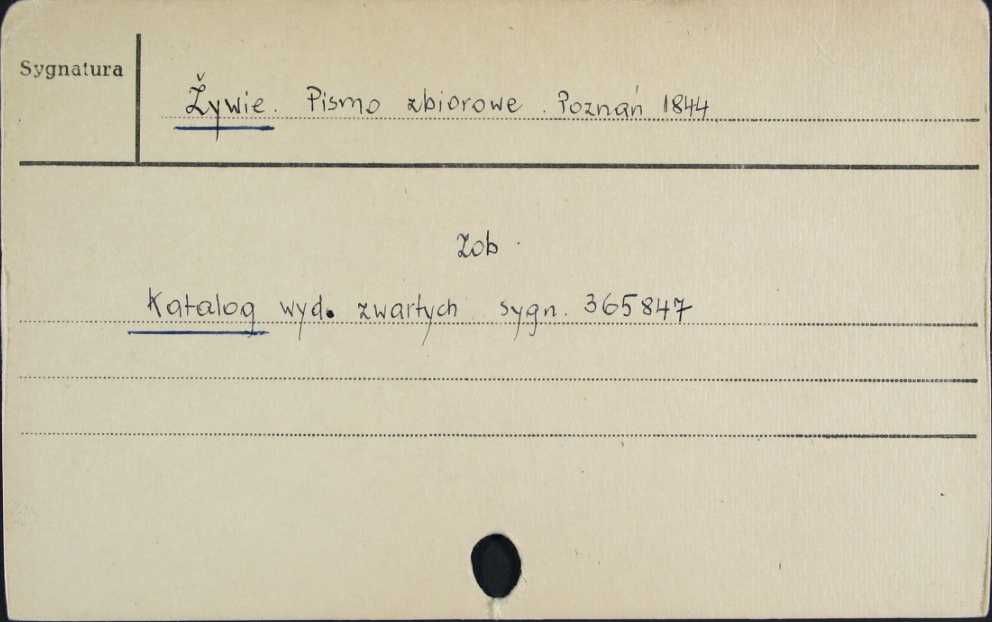 Sygnatura
Žywie. Pismo zbiorowe. Poznań 1844
Zob.
Katalog wyd. zwartych sygn. 365847